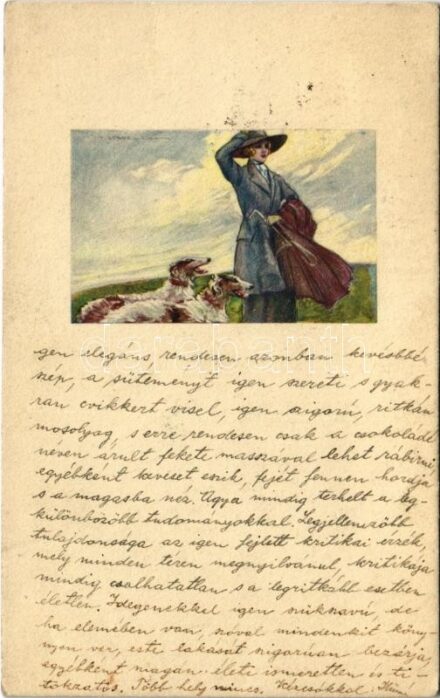 gen elegáns rendesen azonban kevésbbé
szép, a süteményt igen szereti s gyak-
ran cvikkert visel, igen szigorú, ritkán
mosolyog, s erre rendesen csak a csokoládé
néven árult fekete masszával lehet rábirni,
egyébként keveset eszik, fejét fennen hordja
s a magasba néz. Agya mindig terhelt a leg-
különbözőbb tudományokkal. Legjellemzőbb
tulajdonsága az igen fejlett kritikai érzék,
mely minden téren megnyilvánul, kritikája
mindig csalhatatlan s a legritkább esetben
életlen. Idegenekkel igen szűkszavú, de
ha elemében van, szóval mindenkit köny-
nyen ver, esti lakását szigorúan bezárja,
egyébként magán életi ismeretlen és ti-
tokzatos. Több hely nincs.